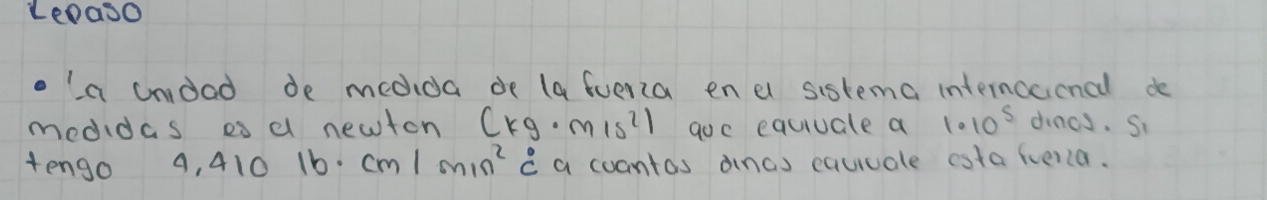 Repaso
• La unidad de medida de la fuerza en el sistema internacional de
medidas es el newton (kg·m/s²) que equivale a 1·10⁵ dinas. Si
tengo 4,410 lb·cm/min² ¿a cuantas dinas equivale esta fuerza.